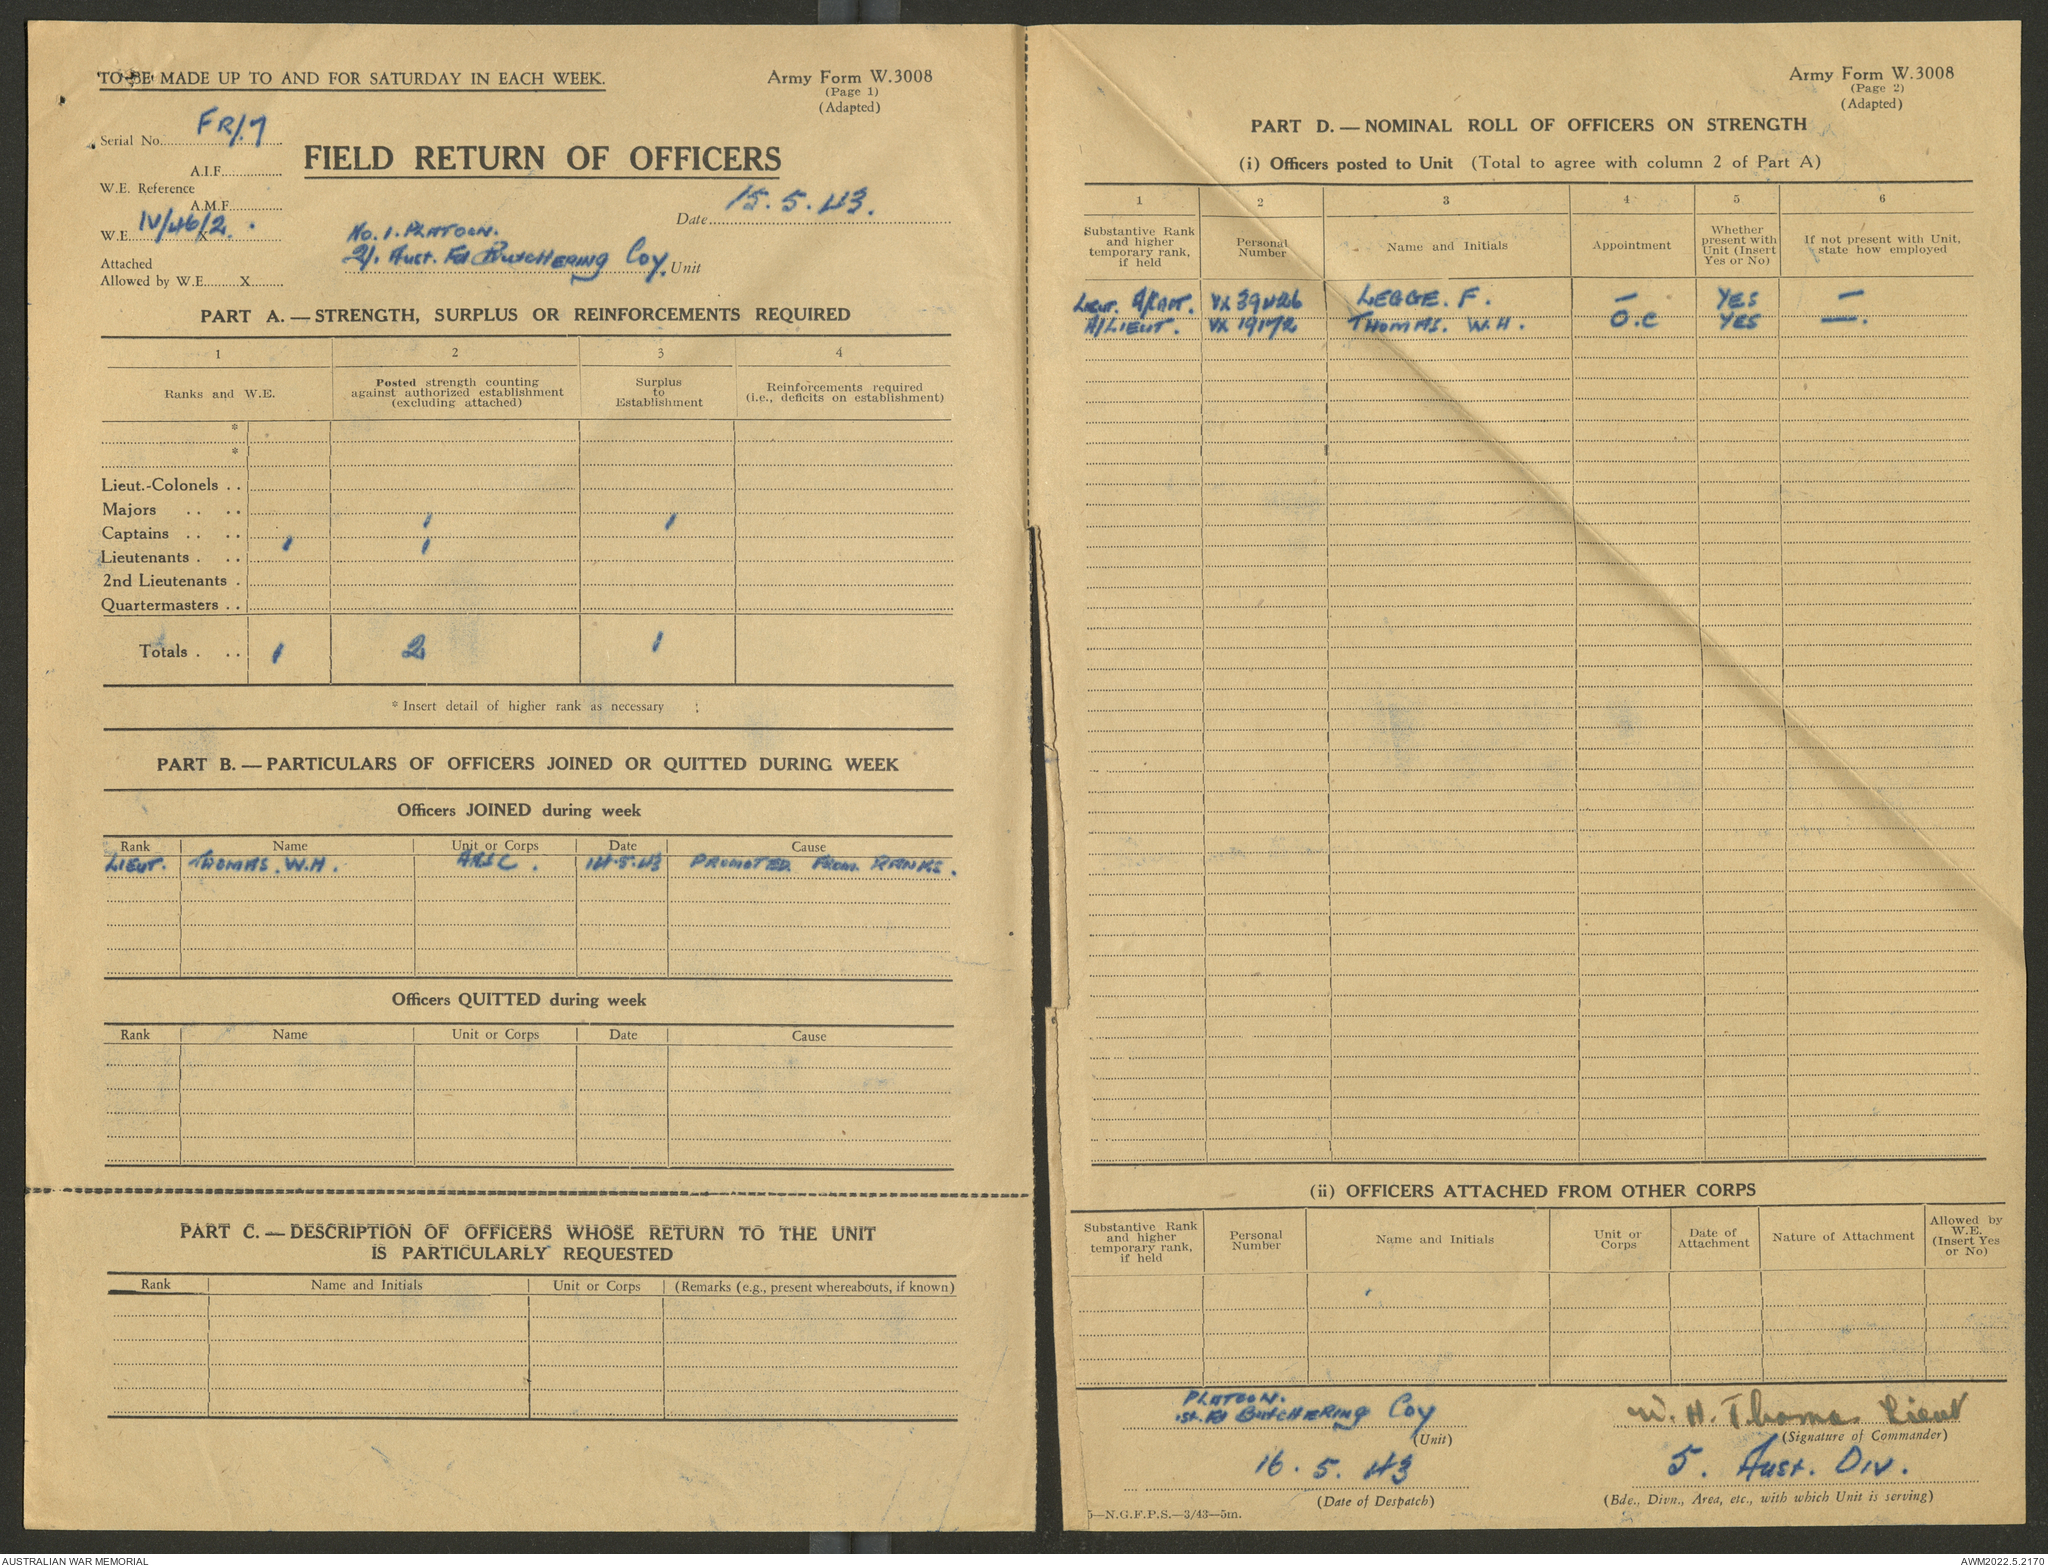 TO BE MADE UP TO AND FOR SATURDAY IN EACH WEEK.
Army Form W.3008
(Page 1)
(Adapted)
Serial No. FR/.7
FIELD RETURN OF OFFICERS
A.I.F.
W.E. Reference
A.M.F.
Date 15.5.43.
W.E. IV/46/2. X
No. 1. PLATOON.
2/1 Aust. Fd BUTCHERING Coy. Unit
Attached
Allowed by W.E. X
PART A. — STRENGTH, SURPLUS OR REINFORCEMENTS REQUIRED
1 2 3 4
Ranks and W.E.
Posted strength counting against authorized establishment (excluding attached)
Surplus to Establishment
Reinforcements required (i.e., deficits on establishment)
*
*
Lieut.-Colonels
Majors
Captains 1 1
Lieutenants 1 1
2nd Lieutenants
Quartermasters
Totals 1 2 1
* Insert detail of higher rank as necessary
PART B. — PARTICULARS OF OFFICERS JOINED OR QUITTED DURING WEEK
Officers JOINED during week
Rank Name Unit or Corps Date Cause
LIEUT. THOMAS. W.H. AASC. 14.5.43 PROMOTED FROM RANKS.
Officers QUITTED during week
Rank Name Unit or Corps Date Cause
PART C. — DESCRIPTION OF OFFICERS WHOSE RETURN TO THE UNIT
IS PARTICULARLY REQUESTED
Rank Name and Initials Unit or Corps (Remarks (e.g., present whereabouts, if known)
Army Form W.3008
(Page 2)
(Adapted)
PART D. — NOMINAL ROLL OF OFFICERS ON STRENGTH
(i) Officers posted to Unit (Total to agree with column 2 of Part A)
1 2 3 4 5 6
Substantive Rank and higher temporary rank, if held
Personal Number
Name and Initials
Appointment
Whether present with Unit (Insert Yes or No)
If not present with Unit, state how employed
LIEUT. A/CAPT. VX 39426 LEGGE. F. — YES —
A/LIEUT. VX 19172 THOMAS. W.H. O.C YES —.
(ii) OFFICERS ATTACHED FROM OTHER CORPS
Substantive Rank and higher temporary rank, if held
Personal Number
Name and Initials
Unit or Corps
Date of Attachment
Nature of Attachment
Allowed by W.E. (Insert Yes or No)
PLATOON.
1st. Fd BUTCHERING Coy
(Unit)
W. H. Thomas Lieut
(Signature of Commander)
16.5.43
(Date of Despatch)
5. Aust. Div.
(Bde., Divn., Area, etc., with which Unit is serving)
5—N.G.F.P.S.—3/43—5m.
AUSTRALIAN WAR MEMORIAL
AWM2022.5.2170